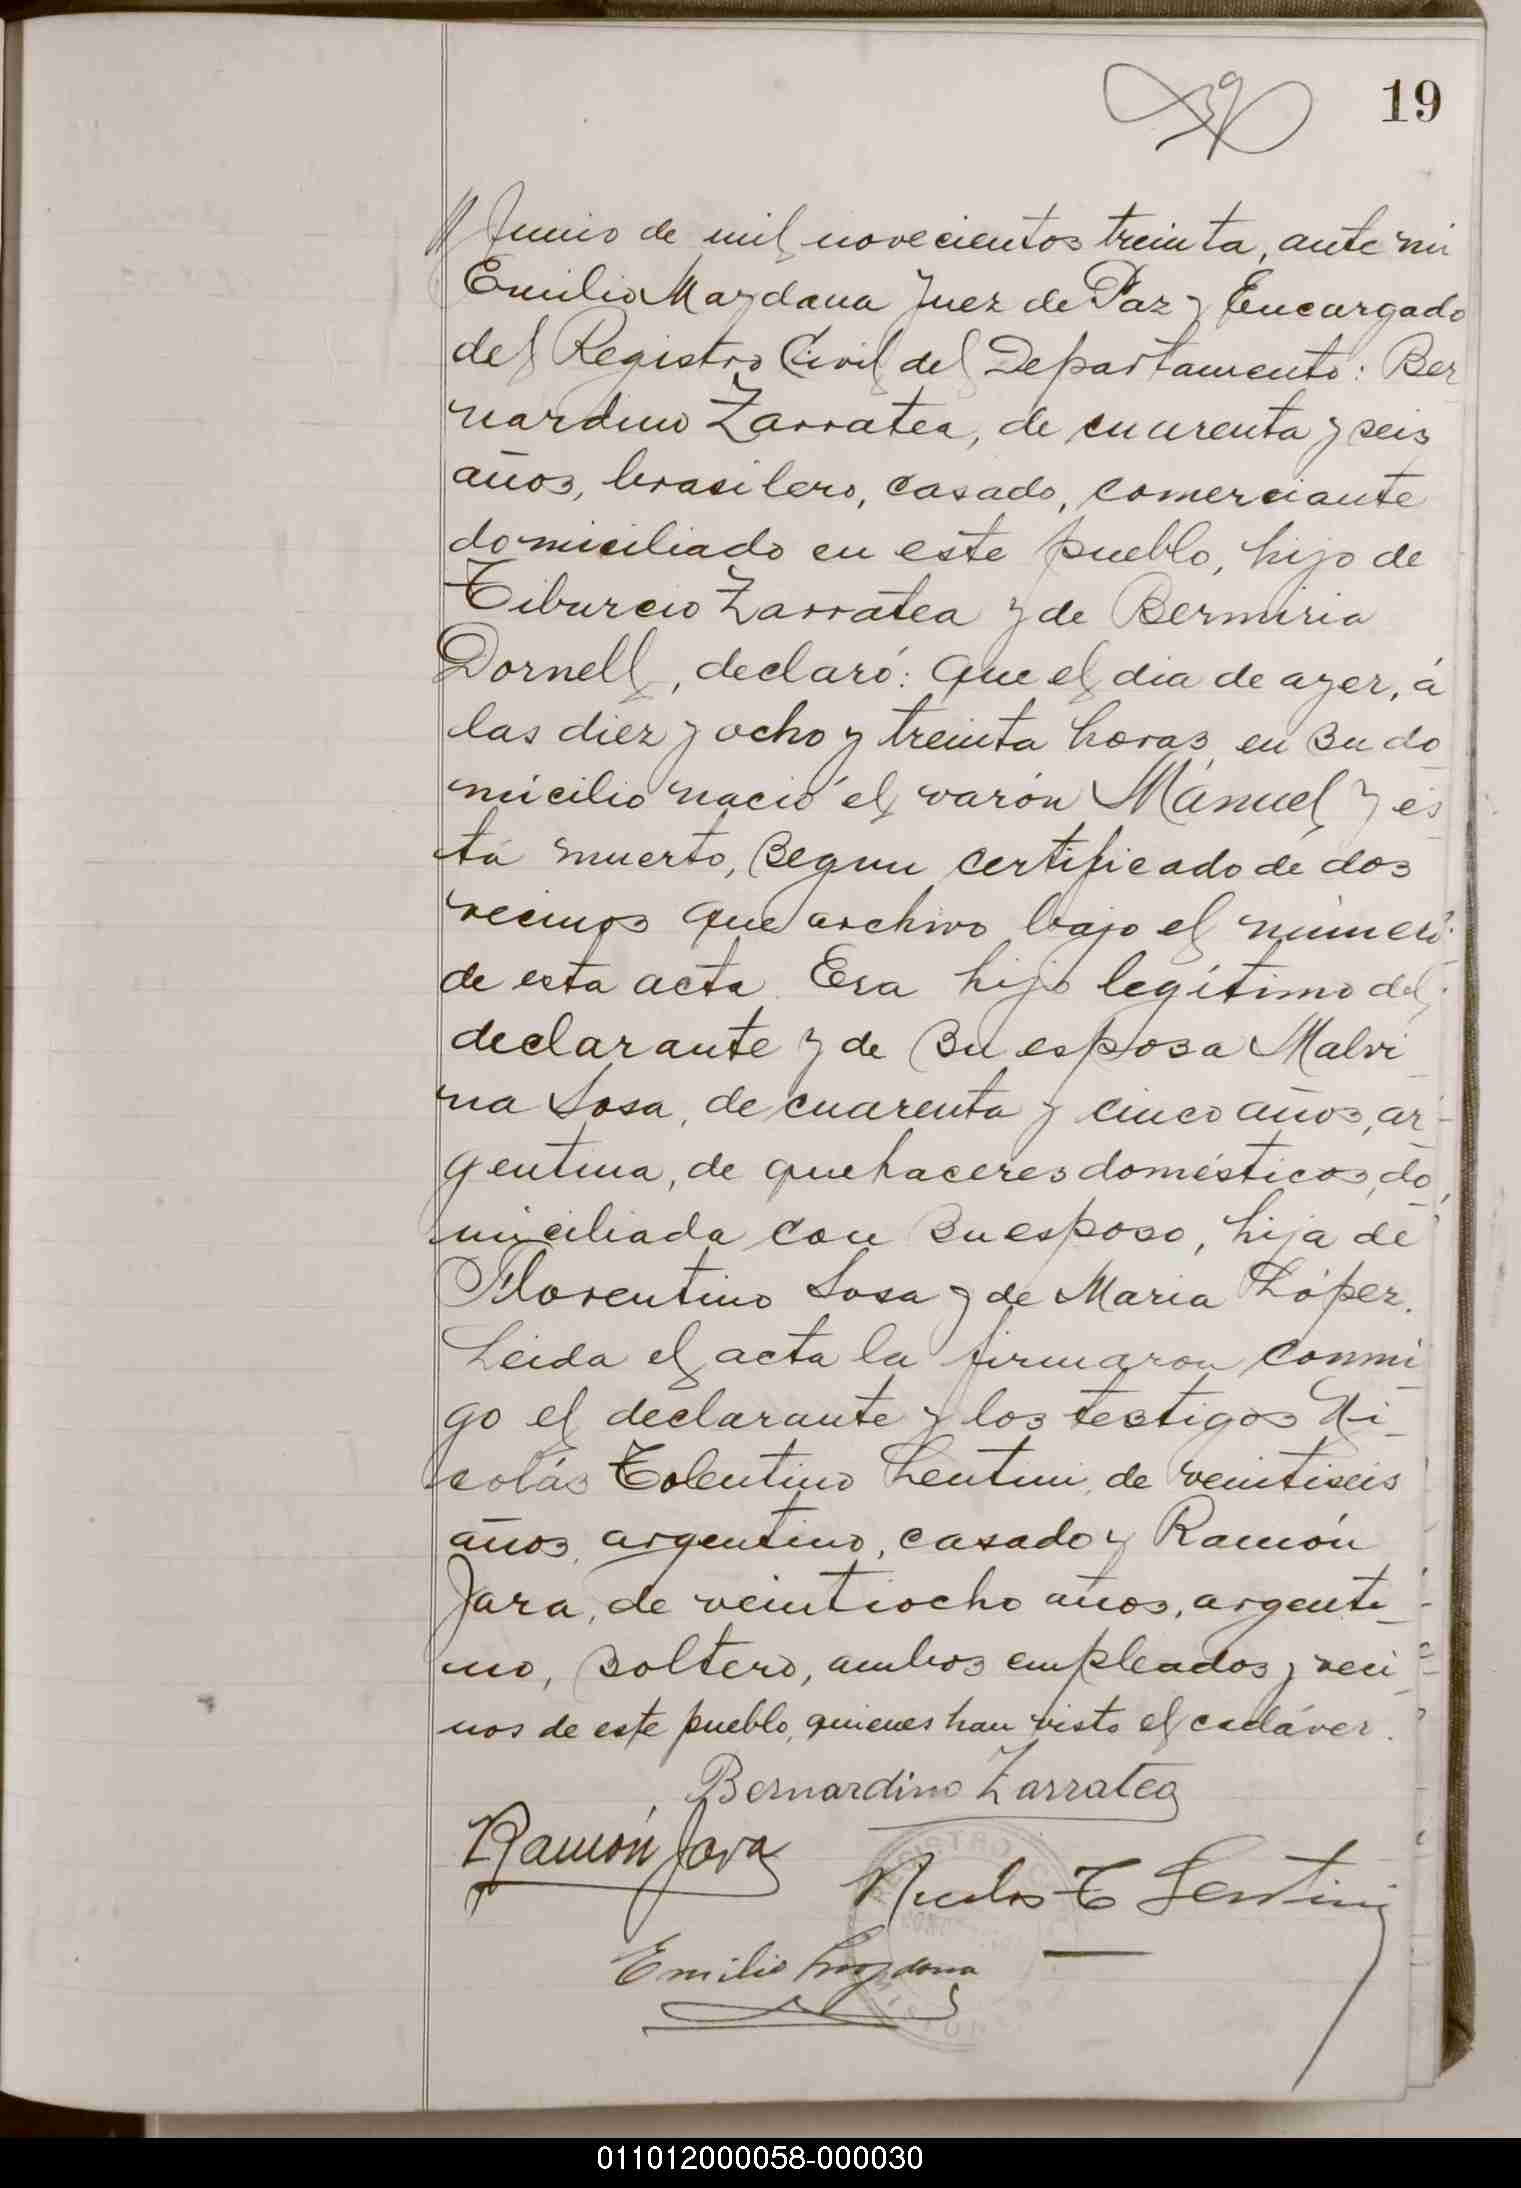 19
// Junio de mil novecientos treinta, ante mi
Emilio Maydana Juez de Paz y Encargado
del Registro Civil del Departamento: Ber
nardino Zarratea, de cuarenta y seis
años, brasilero, casado, comerciante
domiciliado en este pueblo, hijo de
Tiburcio Zarratea y de Bermiria
Dornell, declaró: Que el dia de ayer, á
las diez y ocho y treinta horas, en su do_
micilio nació el varón Manuel y es_
tá muerto, segun certificado de dos
vecinos que archivo bajo el número
de esta acta. Era hijo legítimo del
declarante y de su esposa Malvi_
na Sosa, de cuarenta y cinco años, ar_
gentina, de quehaceres domésticos, do_
miciliada con su esposo, hija de
Florentino Sosa y de Maria López.
Leida el acta la firmaron conmi_
go el declarante y los testigos Ni_
colás Tolentino Lentini, de veintiseis
años, argentino, casado y Ramón
Jara, de veintiocho años, argenti_
no, soltero, ambos empleados y veci_
nos de este pueblo, quienes han visto el cadáver.
Bernardino Zarratea
Ramón Jara
Nicolas T Lentini
Emilio Maydana
011012000058-000030